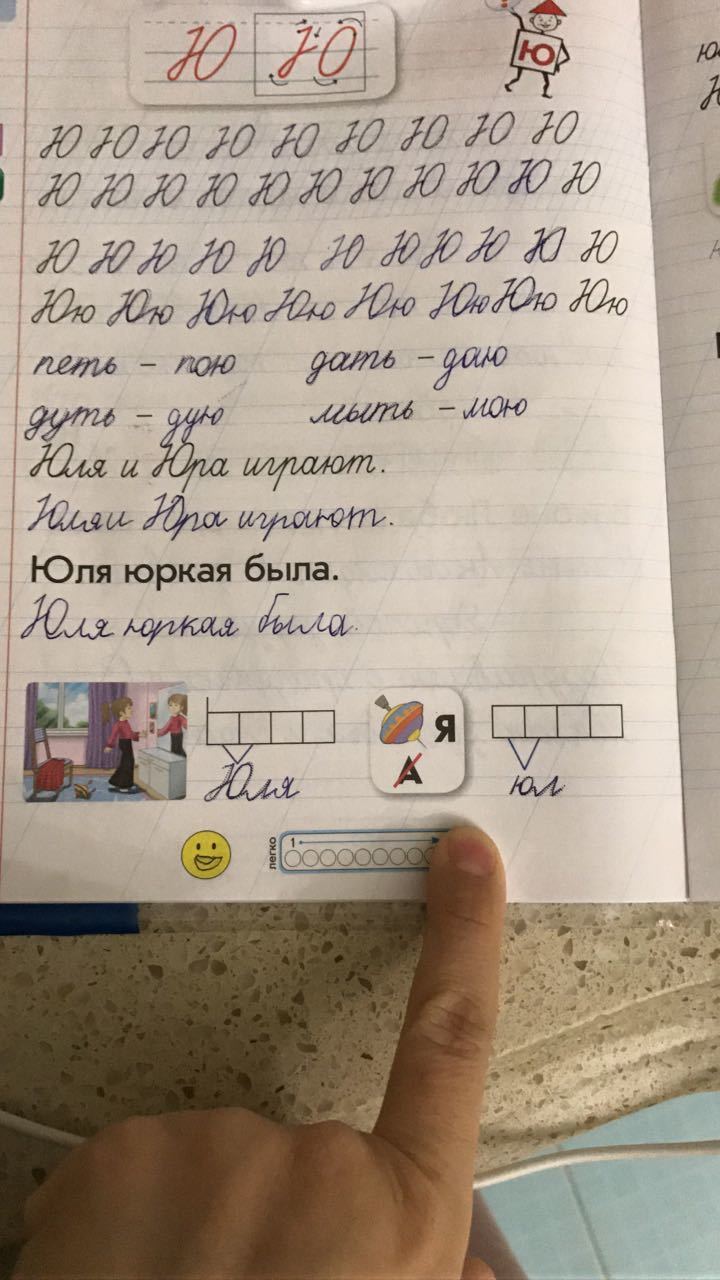 Ю Ю Ю
Ю Ю Ю Ю Ю Ю Ю Ю Ю
Ю Ю Ю Ю Ю Ю Ю Ю Ю Ю Ю
Ю Ю Ю Ю Ю Ю Ю Ю Ю Ю Ю
Юю Юю Юю Юю Юю Юю Юю Юю
петь – пою дать – даю
дуть – дую мыть – мою
Юля и Юра играют.
Юля и Юра играют.
Юля юркая была.
Юля юркая была.
Я
А
Юля юл
легко 1